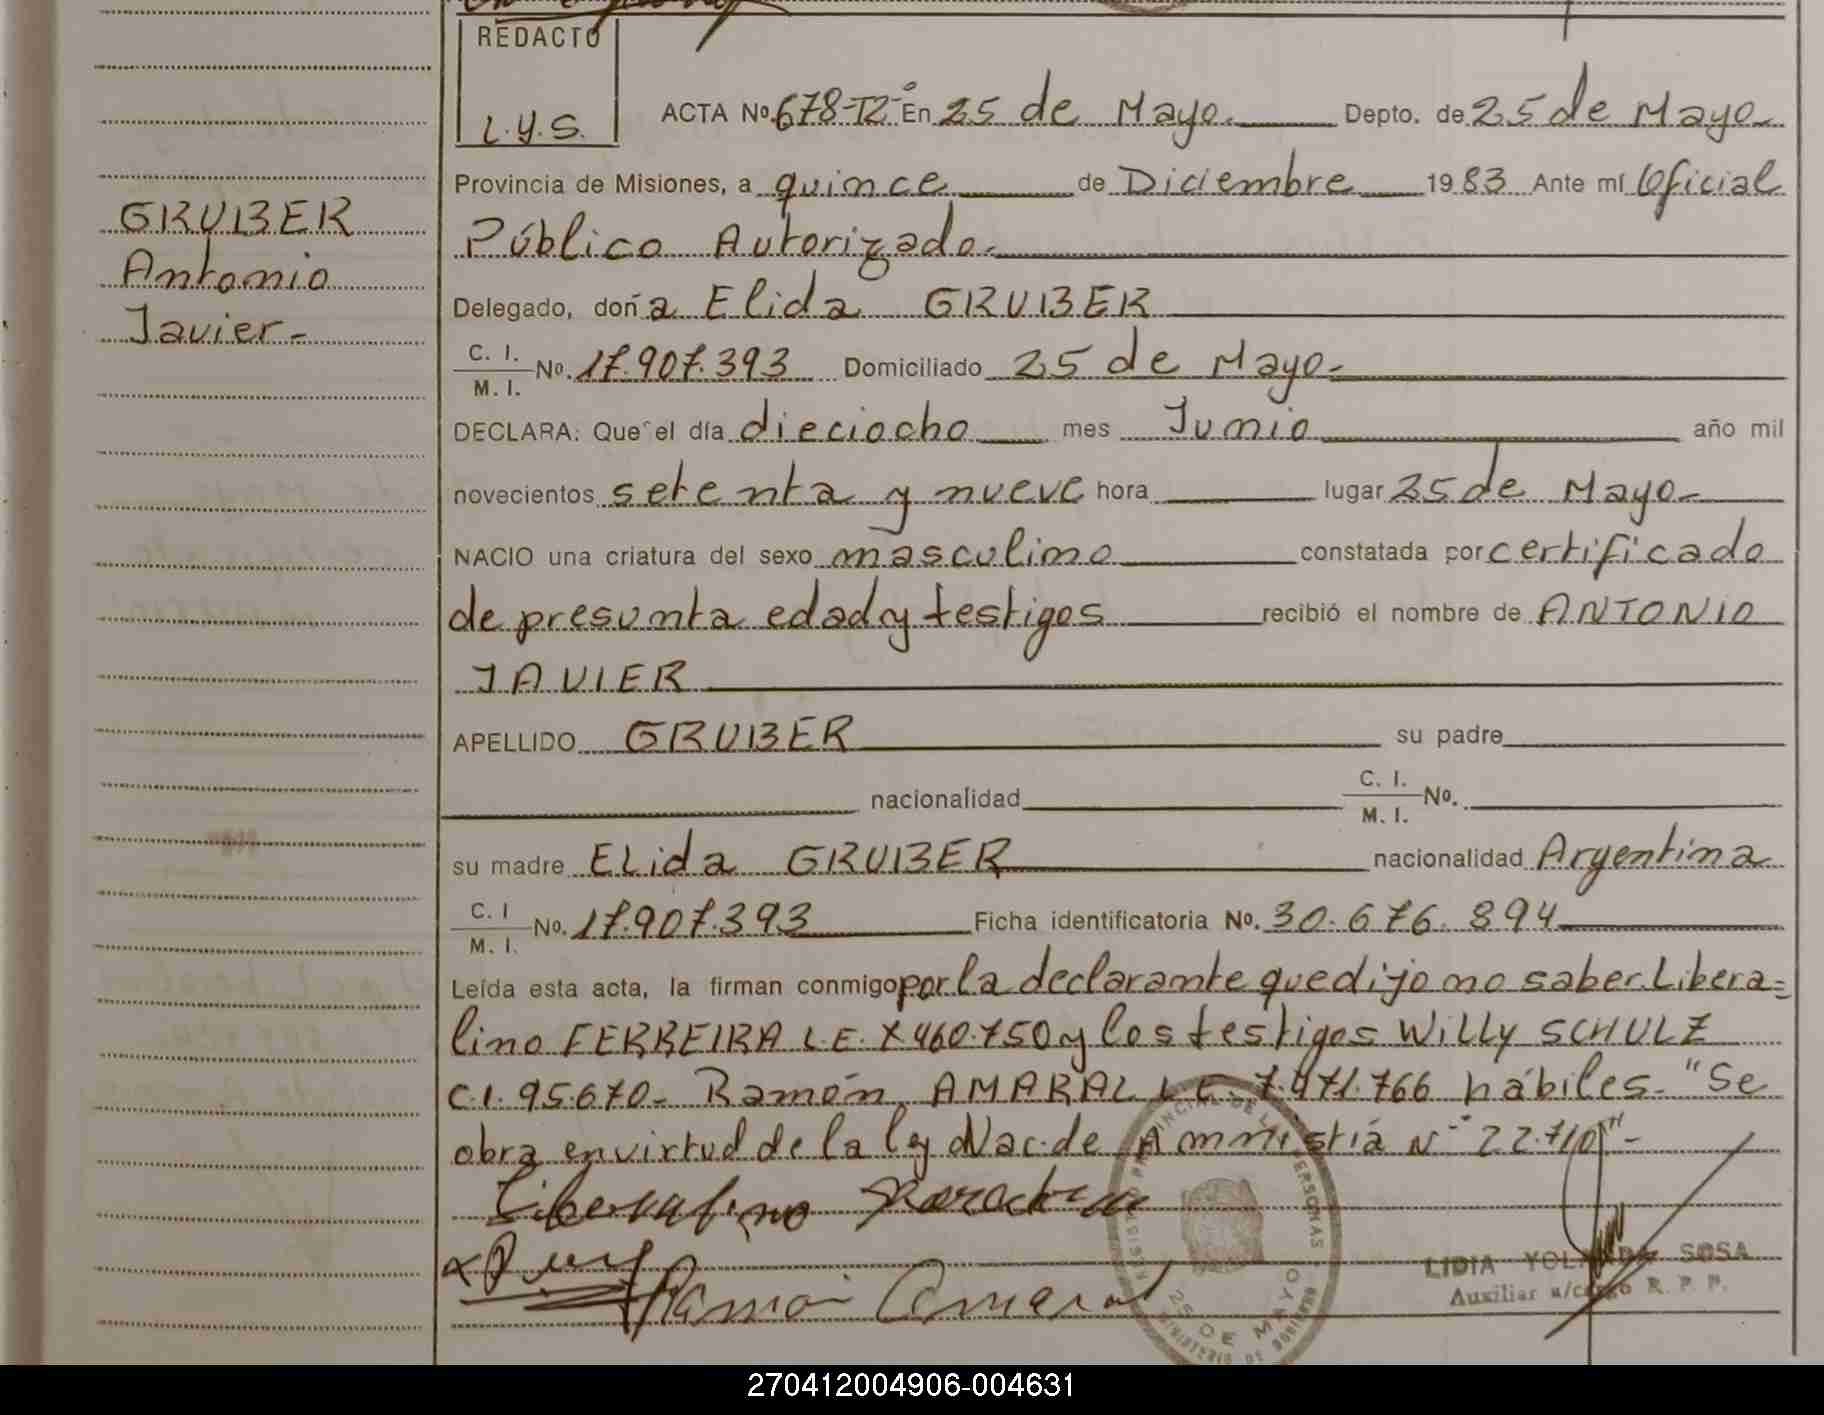 REDACTO
L.Y.S.
ACTA Nº 678-Tº2- En 25 de Mayo. Depto. de 25 de Mayo
Provincia de Misiones, a quince de Diciembre 1983 Ante mí Oficial
Público Autorizado.
Delegado, doña Elida GRUBER
C. I.
M. I. Nº. 17.907.393 Domiciliado 25 de Mayo-
DECLARA: Que el día dieciocho mes Junio año mil
novecientos setenta y nueve hora lugar 25 de Mayo-
NACIO una criatura del sexo masculino constatada por certificado
de presunta edad y testigos recibió el nombre de ANTONIO
JAVIER
APELLIDO GRUBER su padre
nacionalidad C. I.
M. I. Nº.
su madre ELida GRUBER nacionalidad Argentina
C. I
M. I. Nº. 17.907.393 Ficha identificatoria Nº. 30.676.894
Leída esta acta, la firman conmigo por la declarante que dijo no saber Libera=
lino FERREIRA L.E. 7460.750 y los testigos Willy SCHULZ
C.I. 95.670- Ramón AMARAL L.E. 7.471.766 hábiles- "Se
obra en virtud de la ley Nac. de Ammistiá Nº 22.710"-
Ramón
GRUBER
Antonio
Javier-
LIDIA YOLANDA SOSA
Auxiliar a/cargo R. P. P.
REGISTRO PROVINCIAL DE LAS PERSONAS
25 DE MAYO
MINISTERIO DE GOBIERNO
270412004906-004631